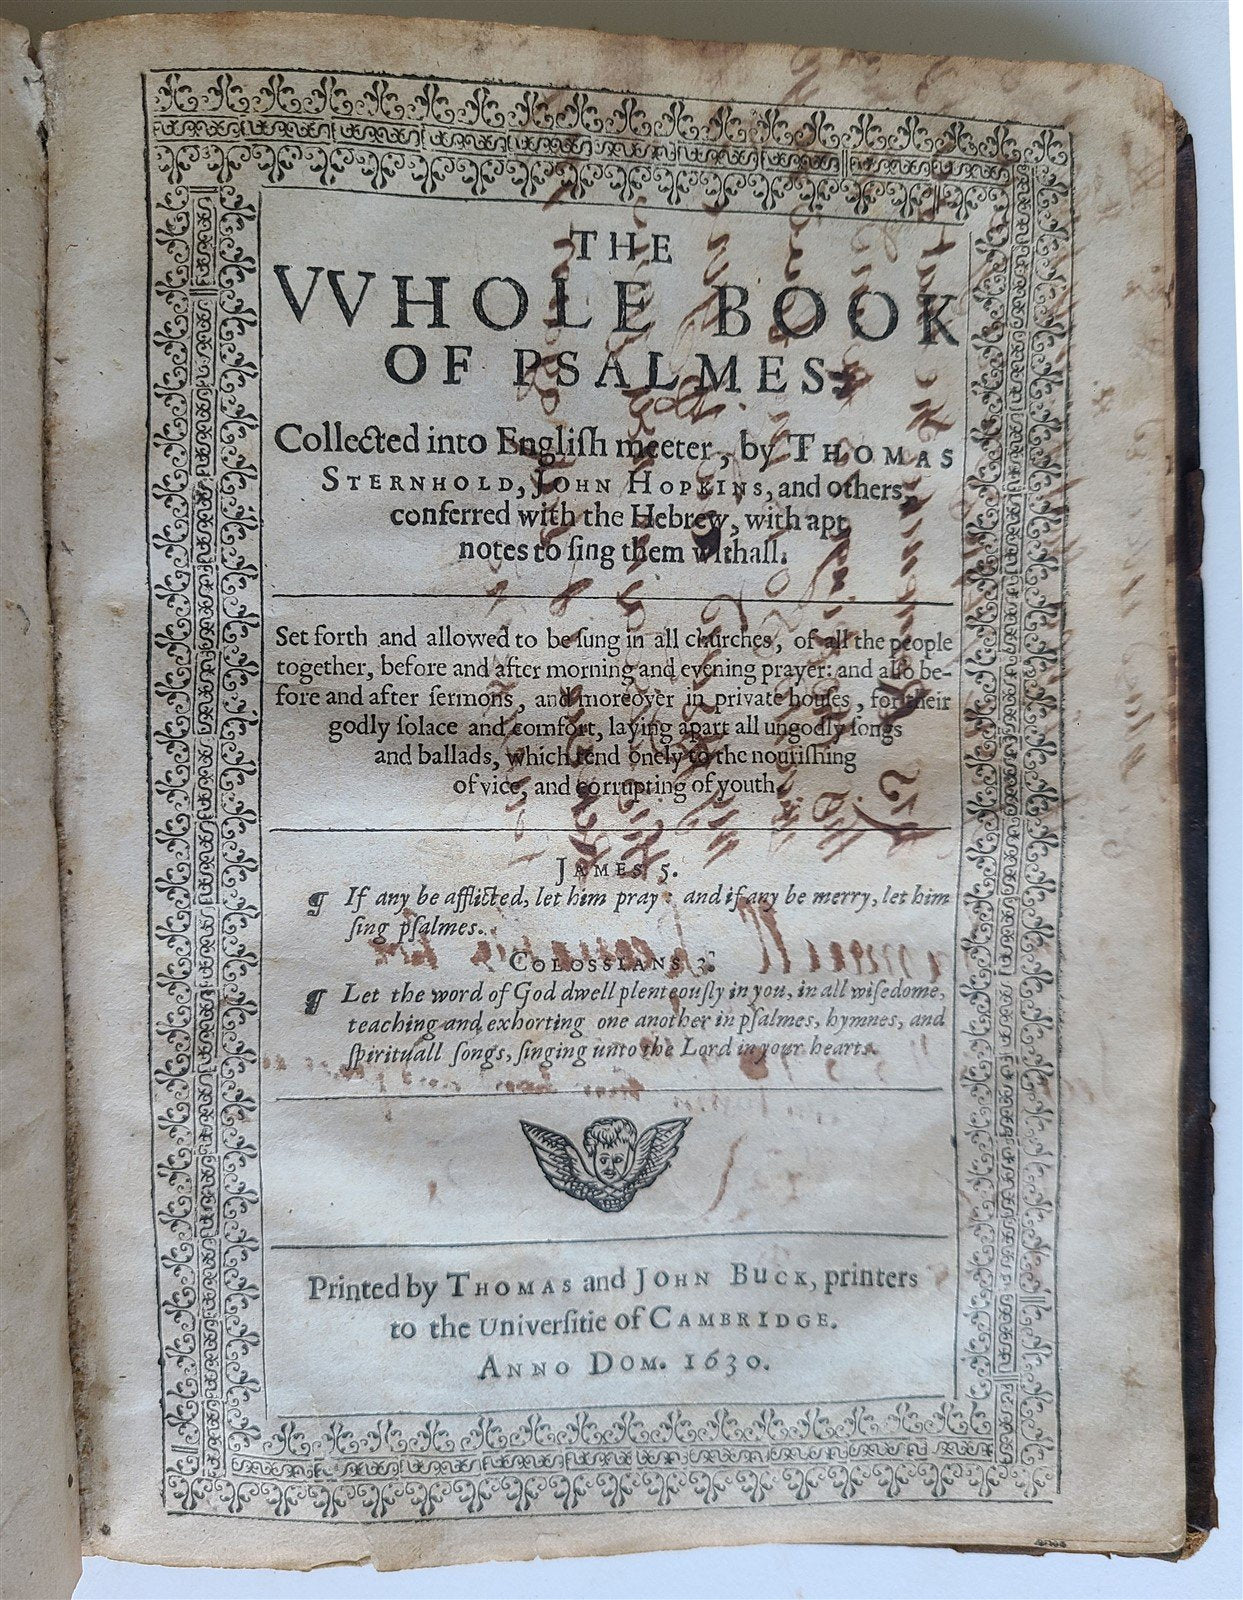 THE
VVHOLE BOOK
OF PSALMES:
Collected into Engliſh meeter, by THOMAS
STERNHOLD, JOHN HOPKINS, and others,
conferred with the Hebrew, with apt
notes to ſing them withall.
Set forth and allowed to be ſung in all churches, of all the people
together, before and after morning and evening prayer: and alſo be-
fore and after ſermons, and moreover in private houſes, for their
godly ſolace and comfort, laying apart all ungodly ſongs
and ballads, which tend onely to the nouriſhing
of vice, and corrupting of youth.
JAMES 5.
¶ If any be afflicted, let him pray: and if any be merry, let him
ſing pſalmes.
COLOSSIANS 3.
¶ Let the word of God dwell plenteouſly in you, in all wiſedome,
teaching and exhorting one another in pſalmes, hymnes, and
ſpirituall ſongs, ſinging unto the Lord in your hearts.
Printed by THOMAS and JOHN BUCK, printers
to the Univerſitie of CAMBRIDGE.
ANNO DOM. 1630.